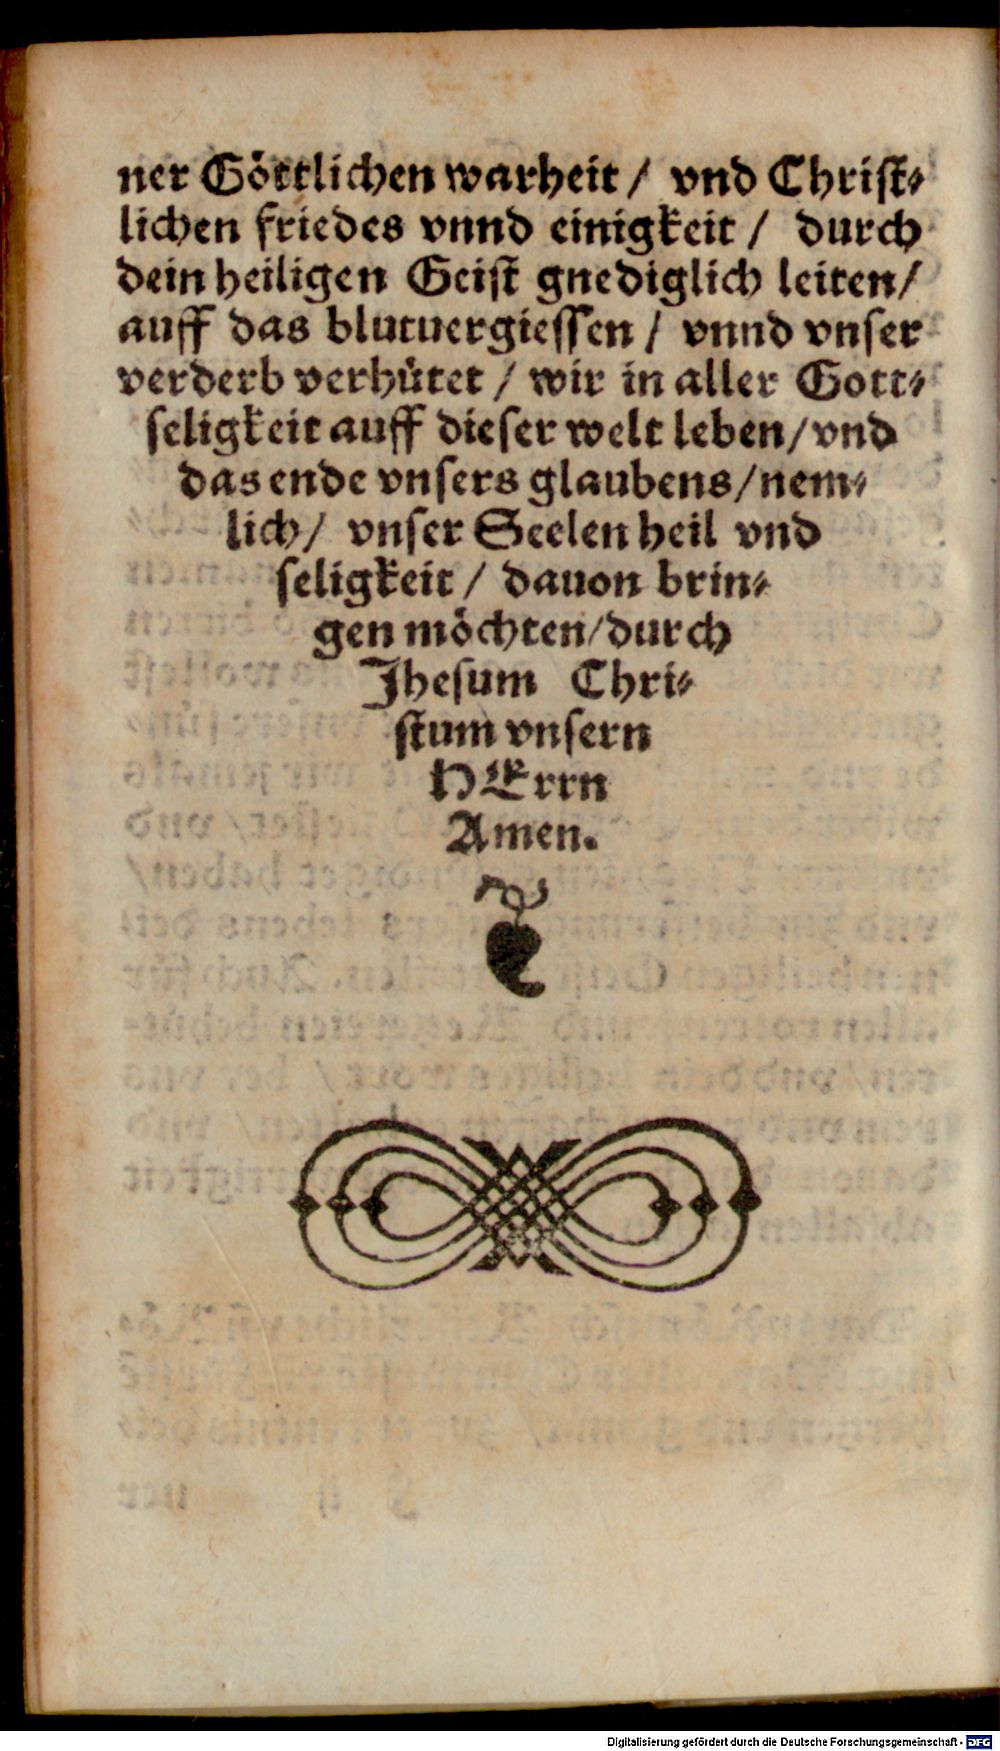 ner Göttlichen warheit / vnd Christ⸗
lichen friedes vnnd einigkeit / durch
dein heiligen Geist gnediglich leiten/
auff das blutuergiessen / vnnd vnser
verderb verhütet / wir in aller Gott⸗
seligkeit auff dieser welt leben/vnd
das ende vnsers glaubens/nem⸗
lich/ vnser Seelen heil vnd
seligkeit / dauon brin⸗
gen möchten/durch
Jhesum Chri⸗
stum vnsern
HErrn
Amen.
Digitalisierung gefördert durch die Deutsche Forschungsgemeinschaft - DFG